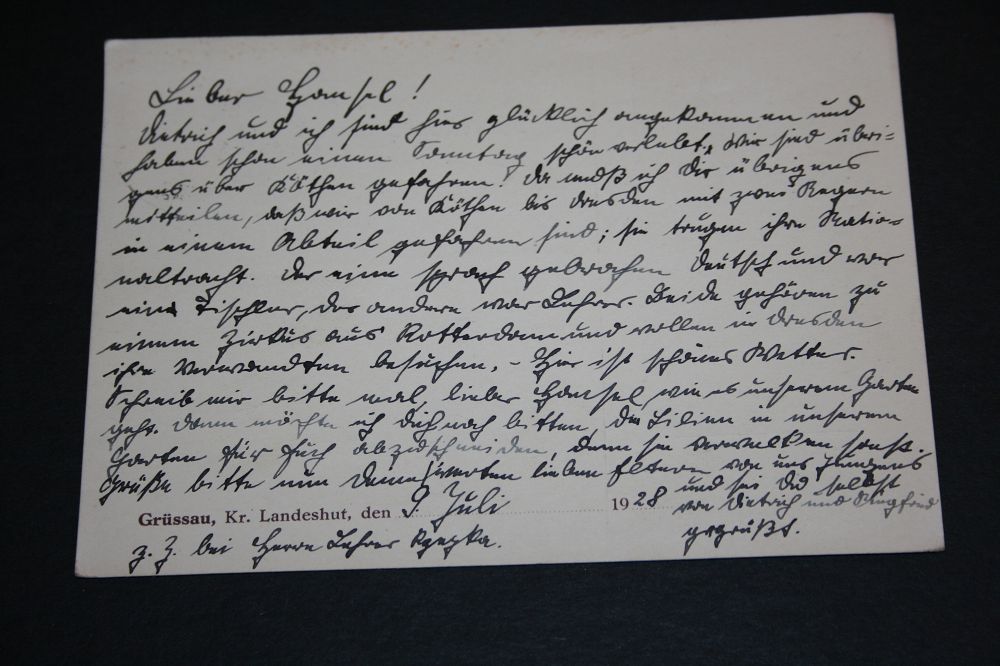 Lieber Hansel!
Dietrich und ich sind hier glücklich angekommen und
haben schon einen Sonntag schön verlebt. Wir sind übri=
gens über Köthen gefahren! Da muß ich Dir übrigens
mitteilen, daß wir von Köthen bis Dresden mit zwei Negern
in einem Abteil gefahren sind; sie trugen ihre Natio=
naltracht. Der eine sprach gebrochen Deutsch und war
ein Tischler, der andere war Lehrer. Beide gehören zu
einem Zirkus aus Rotterdam und wollen in Dresden
ihre Verwandten besuchen. – Hier ist schönes Wetter.
Schreib mir bitte mal, lieber Hansel, wie es unserem Garten
geht. Dann möchte ich Dich noch bitten, die Lilien in unserem
Garten für Euch abzuschneiden, denn sie verwelken sonst.
Grüße bitte nun Deine werten lieben Eltern von uns Jungens
und sei Du selbst
von Dietrich und
gegrüßt.
Grüssau, Kr. Landeshut, den 9. Juli 1928
z. Z. bei Herrn Lehrer Rzepka.